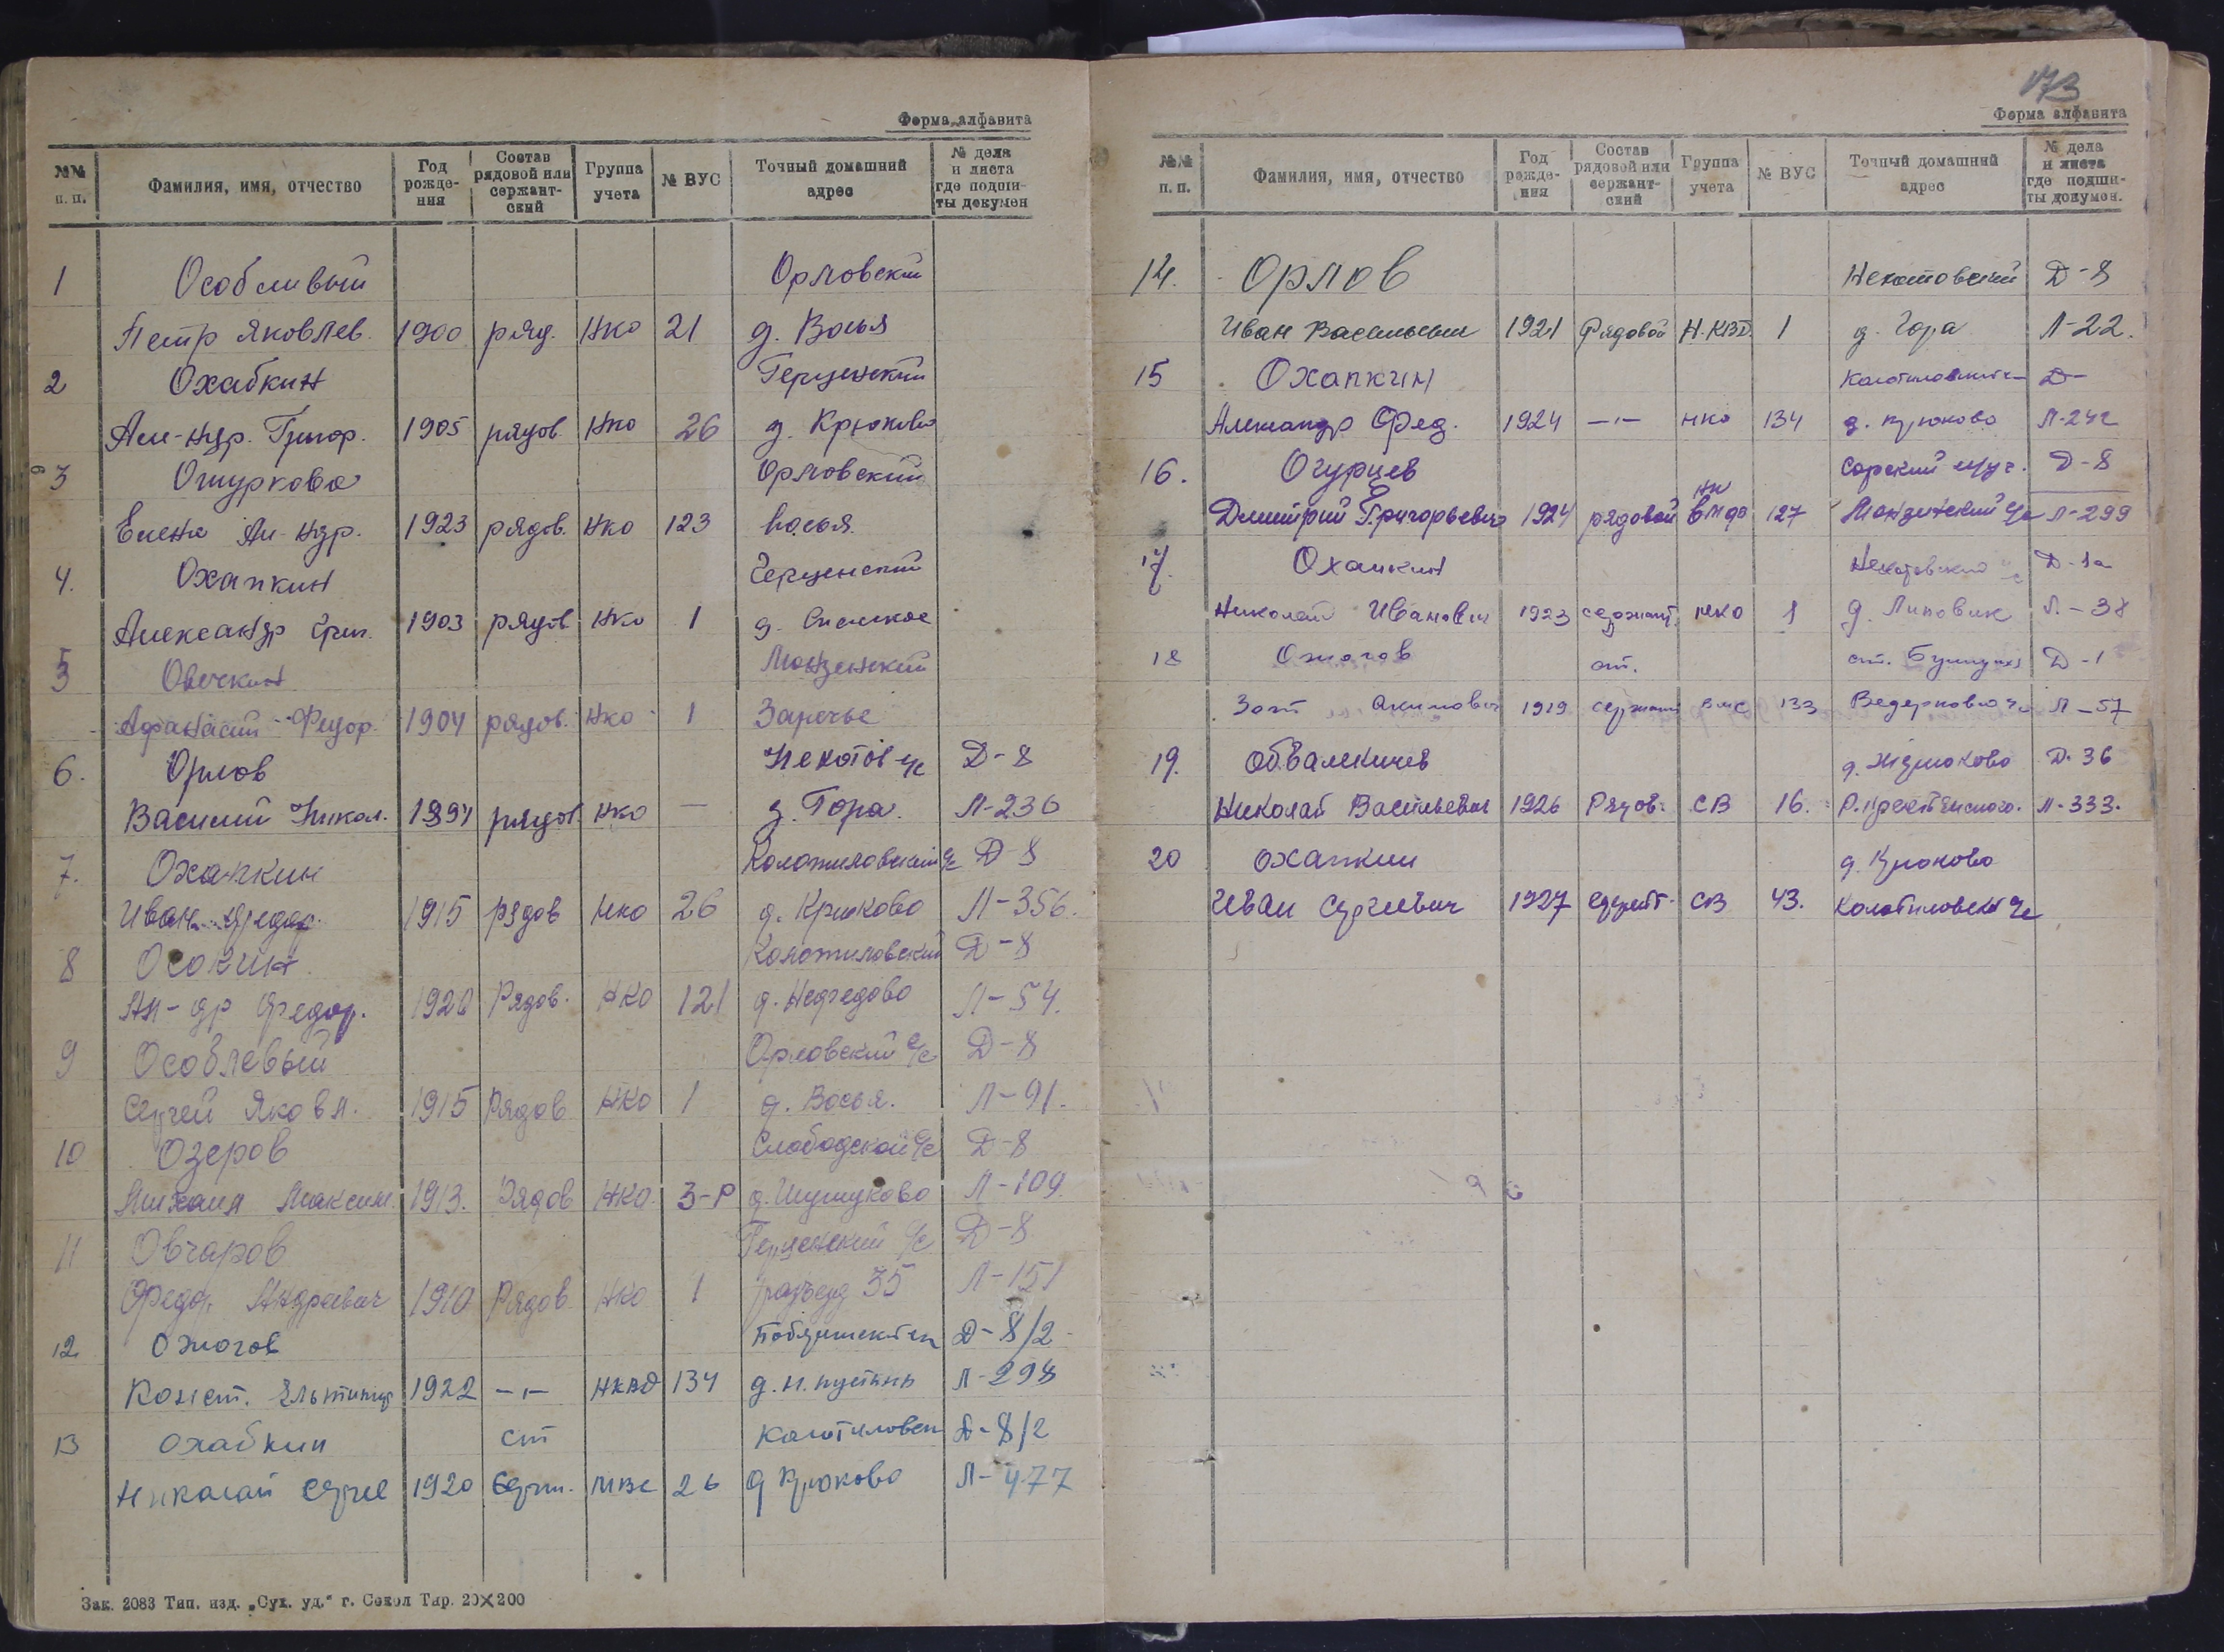 Форма алфавита
№№ п. п. Фамилия, имя, отчество Год рожде-ния Состав рядовой или сержант-ский Группа учета № ВУС Точный домашний адрес № дела и листа где подши-ты докумен
1 Особливый Орловский
Петр Яковлев. 1900 ряд. НКО 21 д. Восья
2 Охабкин Герценский
Ал-ндр. Григор. 1905 рядов. НКО 26 д. Крюково
3 Ошуркова Орловский
Елена Ал-ндр. 1923 рядов. НКО 123 Восья
4. Охапкин Герценский
Александр Григ. 1903 рядов НКО 1 д.
5 Овечкин Монзенский
Афанасий Федор. 1904 рядов. НКО 1 Заречье
6. Орлов Некотов с/с Д-8
Василий Никол. 1894 рядов НКО — д. Гора. Л-236
7. Охапкин Колотиловский с/с Д-8
Иван Федор. 1915 рядов НКО 26 д. Крюково Л-356.
8 Осокин Колотиловский Д-8
Ал-др Федор. 1920 Рядов. НКО 121 д. Нефедово Л-54.
9 Особлевый Орловский с/с Д-8
Сергей Яковл. 1915 Рядов НКО 1 д. Восья. Л-91.
10 Озеров Слободской с/с Д-8
Михаил Максим. 1913. Рядов НКО. 3-Р д. Шушуково Л-109
11 Овчаров Герценский с/с Д-8
Федор Андреевич 1910 Рядов. НКО 1 разъезд 35 Л-151
12 Ожогов Д-8/2
Конст. 1922 -"- НКВД 134 д. н. пустынь Л-298
13 Охабкин ст Колотиловск Д-8/2
Николай Серге 1920 Серж. МВС 26 д Крюково Л-477
Зак. 2083 Тип. изд. „Сух. уд.“ г. Сокол Тир. 20×200
173
Форма алфавита
№№ п. п. Фамилия, имя, отчество Год рожде-ния Состав рядовой или сержант-ский Группа учета № ВУС Точный домашний адрес № дела и листа где подши-ты докумен.
14. Орлов Некотовский Д-8
Иван Васильевич 1921 Рядовой Н.КВД. 1 д. Гора Л-22.
15 Охапкин Д-
Александр Фед. 1924 -"- НКО 134 д. Крюково Л-242
16. Огурцев Д-8
Дмитрий Григорьевич 1924 рядовой 127 Монзенский с/с Л-299
17. Охапкин Некотовский с/с Д-1а
Николай Иванович 1923 сержант НКО 1 д. Липовик Л.-38
18 Ожогов ст. ст. Бушуиха Д-1
Зот Акимович 1919 сержант ВМС 133 Ведерково с/с Л-57
19. Обвалкичев Д. 36
Николай Васильевич 1926 Рядов. СВ 16. Л-333.
20 Охапкин д. Крюково
Иван Сергеевич 1927 сержт. СВ 43. Колотиловск с/с